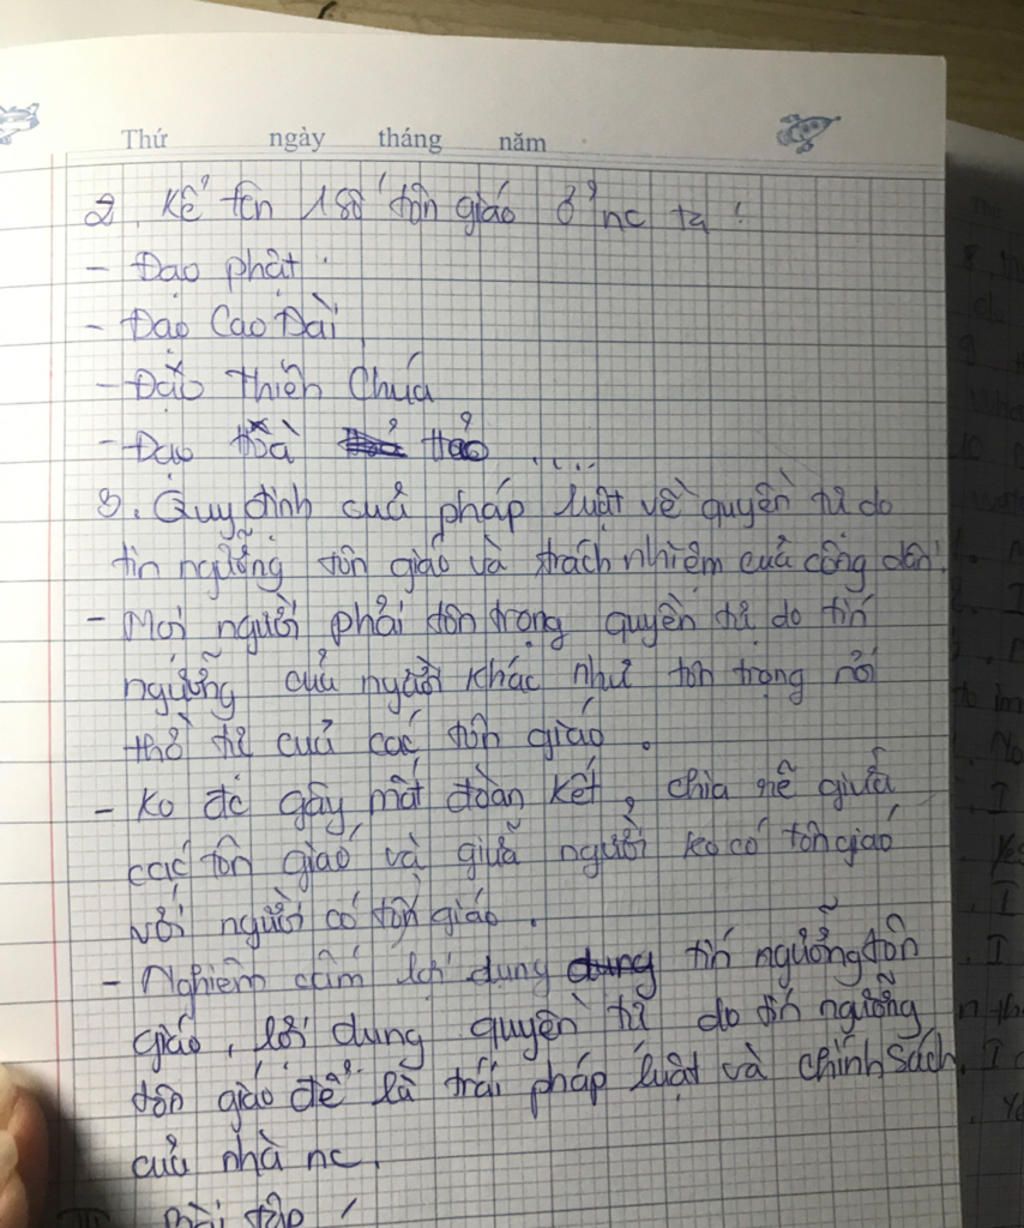 Thứ ngày tháng năm
2, Kể tên 1 số tôn giáo ở nc ta :
- Đạo phật .
- Đạo Cao Đài
- Đạo Thiên Chúa
- Đạo Hoà Hảo .....
3. Quy định của pháp luật về quyền tự do
tín ngưỡng tôn giáo và trách nhiệm của công dân:
- Mọi người phải tôn trọng quyền tự do tín
ngưỡng của người khác như tôn trọng nơi
thờ tự của các tôn giáo .
- Ko đc gây mất đoàn kết, chia rẽ giữa
các tôn giáo và giữa người ko có tôn giáo
với người có tôn giáo .
- Nghiêm cấm lợi dụng tín ngưỡng tôn
giáo, lợi dụng quyền tự do tín ngưỡng
tôn giáo để là trái pháp luật và chính sách
của nhà nc.
Bài tập :